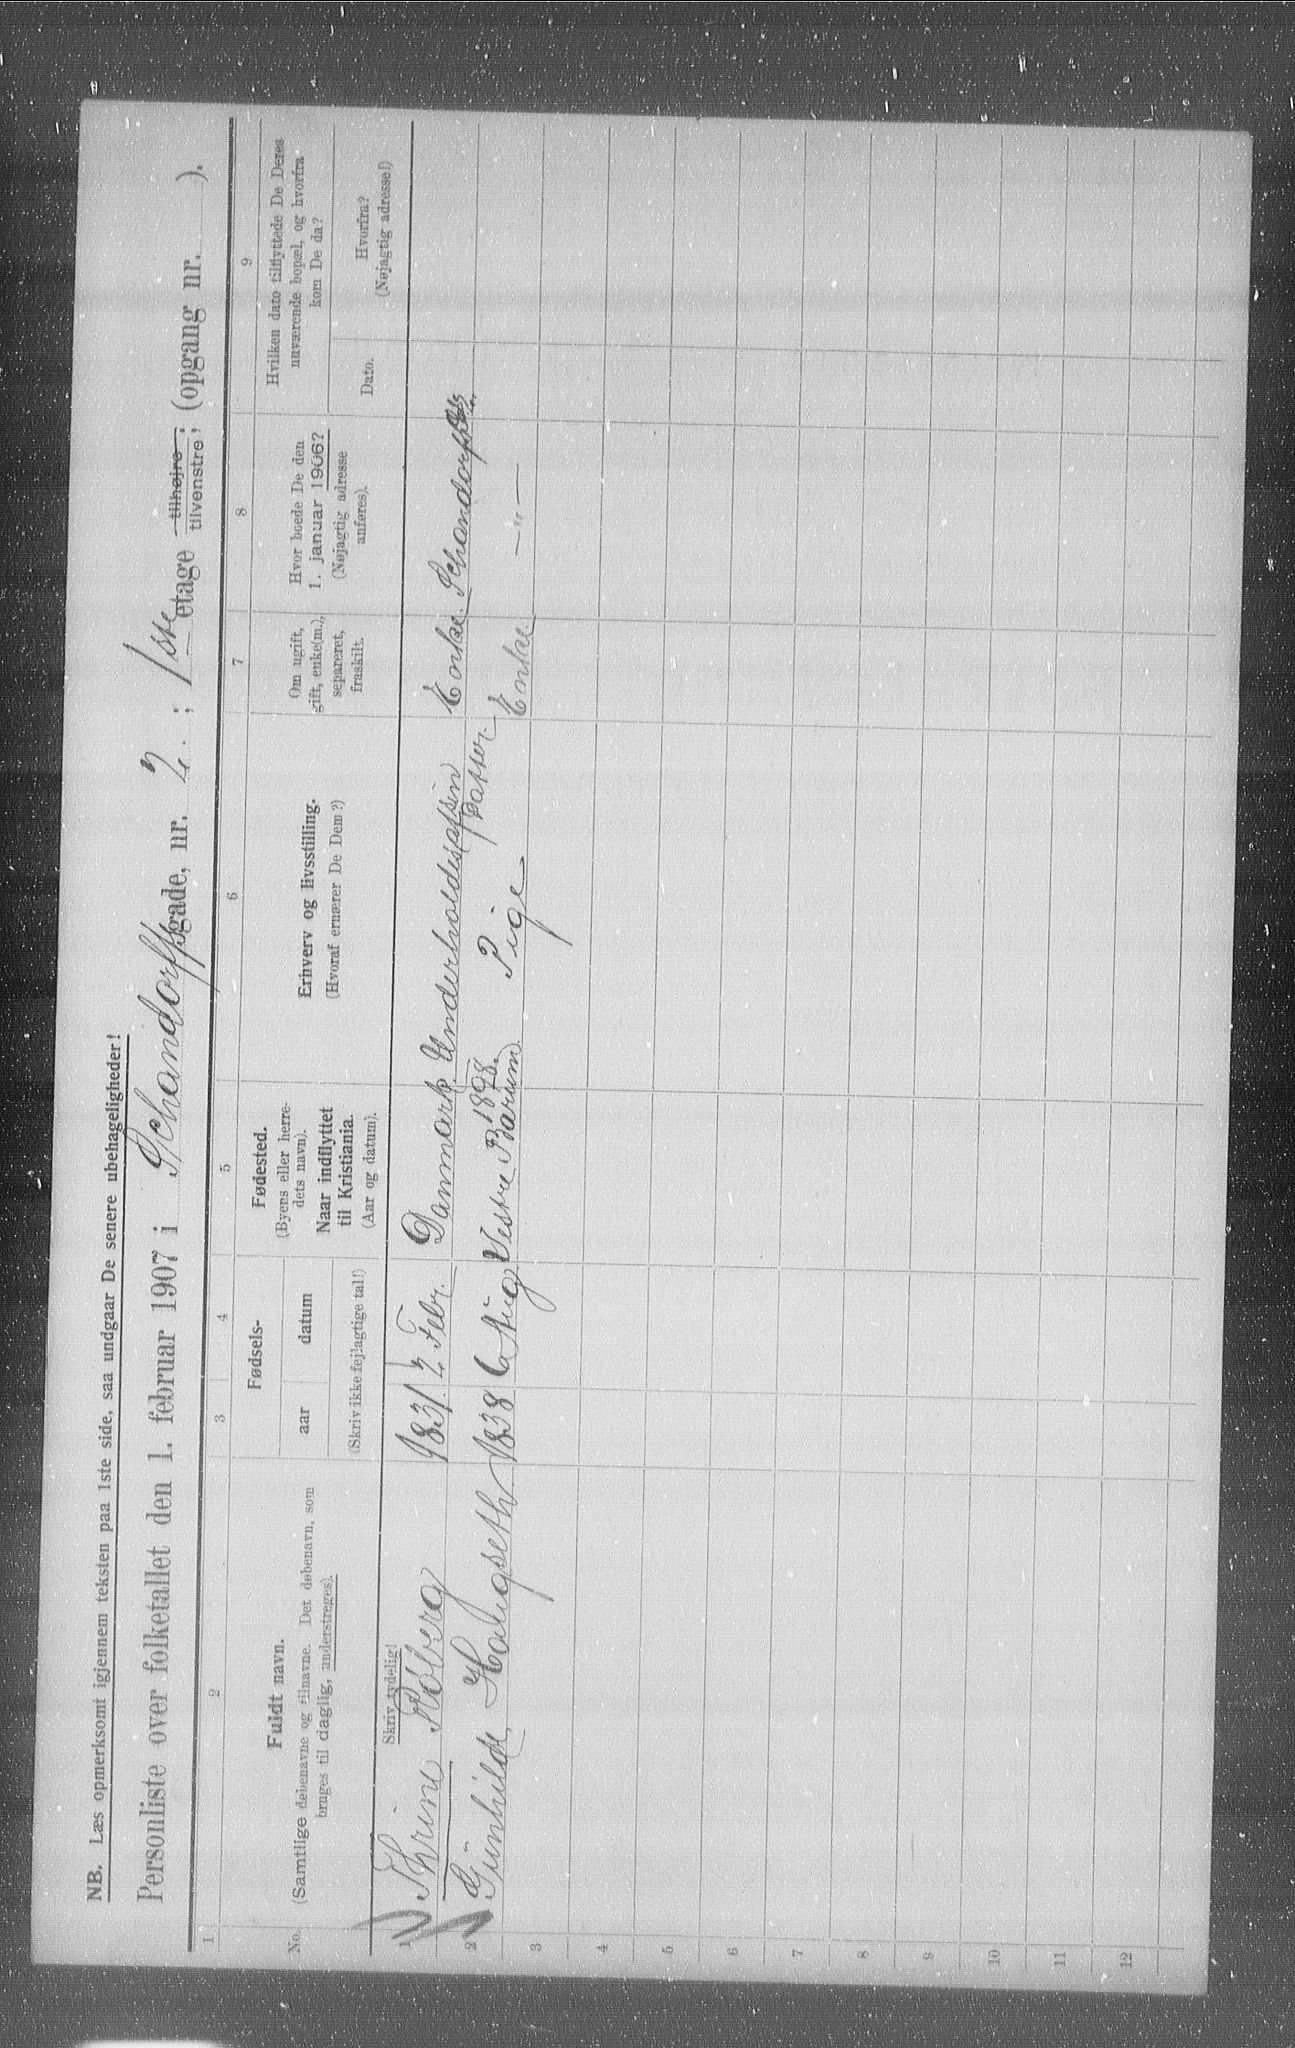 NB. Læs opmerksomt igjennem teksten paa 1ste side, saa undgaar De senere ubehageligheder!
Personliste over folketallet den 1. februar 1907 i Schandorffsgade, nr. 2. ; 1ste etage tilhøjre; tilvenstre; (opgang nr. ).
1 2 3 4 5 6 7 8 9
No.
Fuldt navn.
(Samtlige døbenavne og tilnavne. Det døbenavn, som
bruges til daglig, understreges).
Fødsels-
aar datum
(Skriv ikke fejlagtige tal!)
Fødested.
(Byens eller herre-
dets navn).
Naar indflyttet
til Kristiania.
(Aar og datum).
Erhverv og livsstilling.
(Hvoraf ernærer De Dem?)
Om ugift,
gift, enke(m.),
separeret,
fraskilt.
Hvor boede De den
1. januar 1906?
(Nøjagtig adresse
anføres).
Hvilken dato tilflyttede De Deres
nuværende bopæl, og hvorfra
kom De da?
Dato.
Hvorfra?
(Nøjagtig adresse!)
Skriv tydelig!
1 Thrine Røberg 1831 2 Febr. Danmark. Underholdes af sin Enke. Schandorffsg
1898. Datter
2 Gunhilde Haugseth 1838 6 Aug. Vestre Bærum Pige Enke — " —
3
4
5
6
7
8
9
10
11
12